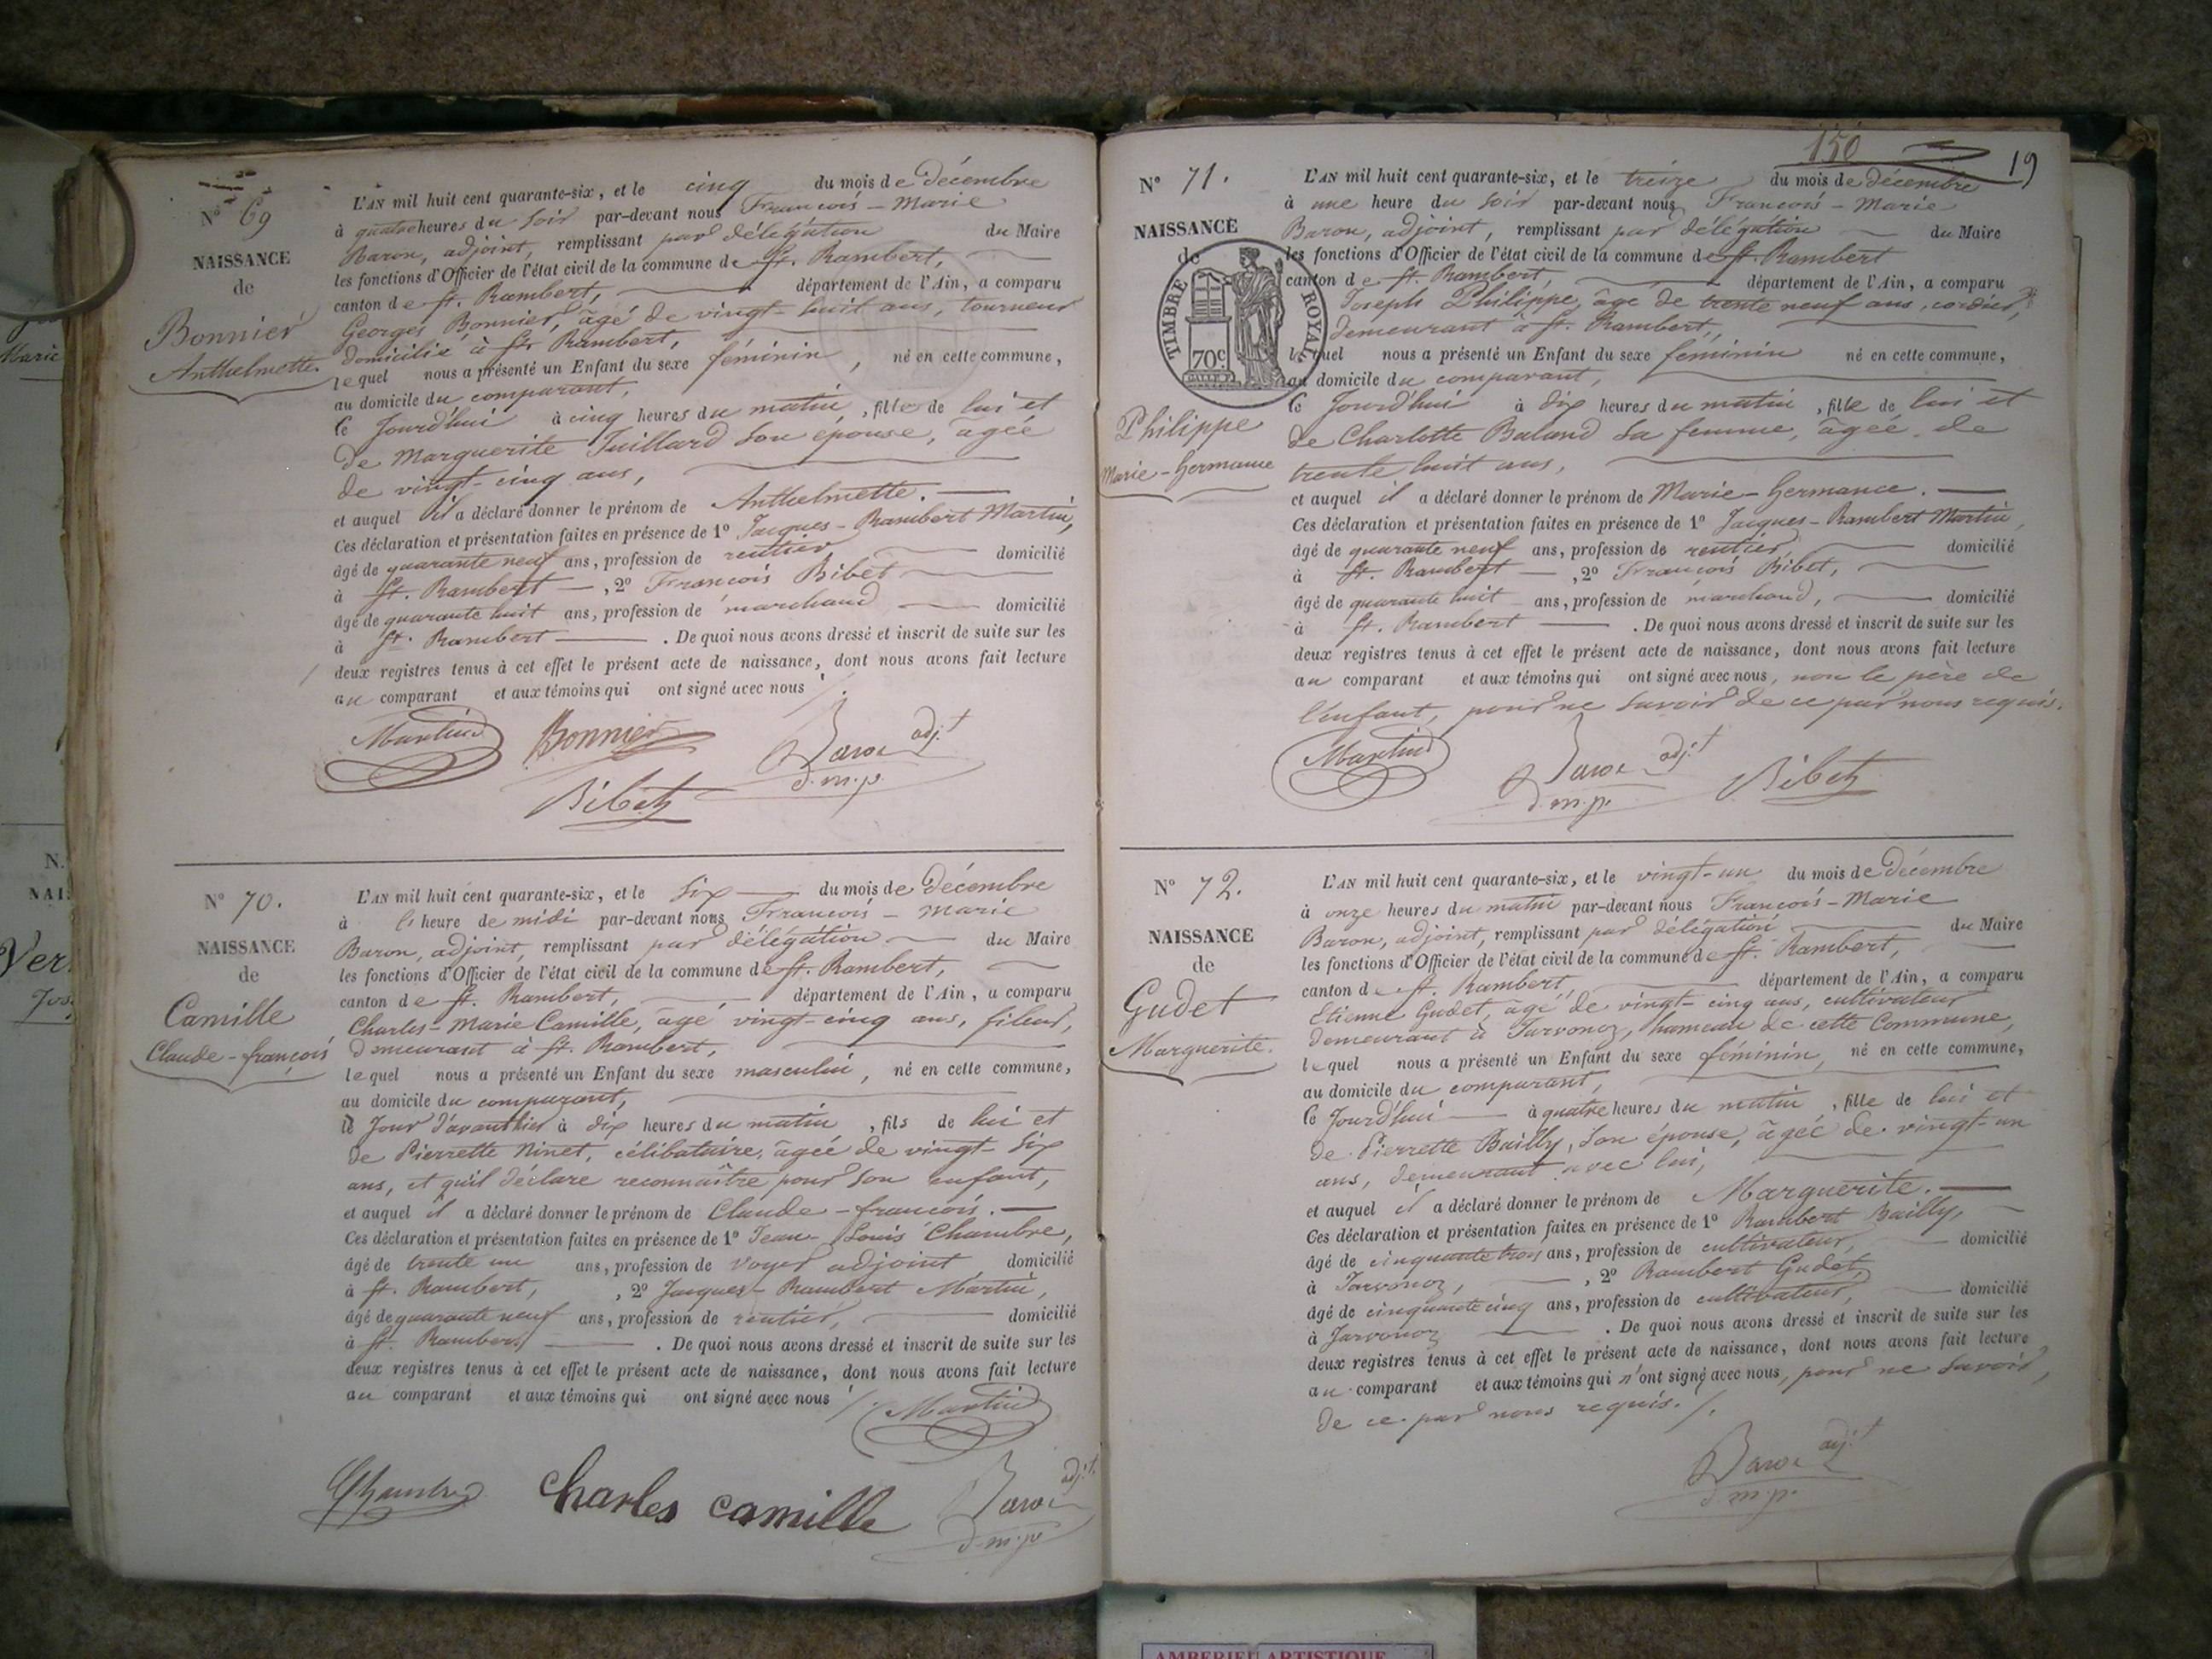 N° 69
NAISSANCE
de
Bonnier
Anthelmette.
L'AN mil huit cent quarante-six, et le cinq du mois de Décembre
à quatre heures du soir par-devant nous François-Marie
Baron, adjoint, remplissant par délégation du Maire
les fonctions d'Officier de l'état civil de la commune de St. Rambert,
canton de St. Rambert, département de l'Ain, a comparu
Georges Bonnier, âgé de vingt-huit ans, tourneur
domicilié à St. Rambert,
lequel nous a présenté un Enfant du sexe féminin, né en cette commune,
au domicile du comparant,
ce jourd'hui à cinq heures du matin, fille de lui et
de Marguerite Juillard son épouse, âgée
de vingt-cinq ans,
et auquel il a déclaré donner le prénom de Anthelmette.
Ces déclaration et présentation faites en présence de 1° Jacques-Rambert Martin,
âgé de quarante neuf ans, profession de rentier, domicilié
à St. Rambert, 2° François Bibet
âgé de quarante huit ans, profession de marchand domicilié
à St. Rambert. De quoi nous avons dressé et inscrit de suite sur les
deux registres tenus à cet effet le présent acte de naissance, dont nous avons fait lecture
au comparant et aux témoins qui ont signé avec nous /.
Martin Bonnier Baron adj.t
d.m.p.
Bibet
N° 70.
NAISSANCE
de
Camille
Claude-françois
L'AN mil huit cent quarante-six, et le six du mois de Décembre
à l'heure de midi par-devant nous François-Marie
Baron, adjoint, remplissant par délégation du Maire
les fonctions d'Officier de l'état civil de la commune de St. Rambert,
canton de St. Rambert, département de l'Ain, a comparu
Charles-Marie Camille, âgé vingt-cinq ans, fileur,
demeurant à St. Rambert,
lequel nous a présenté un Enfant du sexe masculin, né en cette commune,
au domicile du comparant,
le jour d'avant hier à dix heures du matin, fils de lui et
de Pierrette Ninet, célibataire, âgée de vingt-six
ans, et qu'il déclare reconnaître pour son enfant,
et auquel il a déclaré donner le prénom de Claude-françois.
Ces déclaration et présentation faites en présence de 1° Jean-Louis Chambre,
âgé de trente un ans, profession de voyer adjoint domicilié
à St. Rambert, 2° Jacques-Rambert Martin,
âgé de quarante neuf ans, profession de rentier, domicilié
à St. Rambert. De quoi nous avons dressé et inscrit de suite sur les
deux registres tenus à cet effet le présent acte de naissance, dont nous avons fait lecture
au comparant et aux témoins qui ont signé avec nous /.
Martin
Chambre Charles Camille Baron adj.t
d.m.p.
150
19
N° 71.
NAISSANCE
de
TIMBRE ROYAL
70c
Philippe
Marie-Germance
L'AN mil huit cent quarante-six, et le treize du mois de Décembre
à une heure du soir par-devant nous François-Marie
Baron, adjoint, remplissant par délégation du Maire
les fonctions d'Officier de l'état civil de la commune de St. Rambert
canton de St. Rambert, département de l'Ain, a comparu
Joseph Philippe, âgé de trente neuf ans, cordier,
demeurant à St. Rambert,
lequel nous a présenté un Enfant du sexe féminin né en cette commune,
au domicile du comparant,
ce jourd'hui à dix heures du matin, fille de lui et
de Charlotte Baland sa femme, âgée de
trente huit ans,
et auquel il a déclaré donner le prénom de Marie-Germance.
Ces déclaration et présentation faites en présence de 1° Jacques-Rambert Martin,
âgé de quarante neuf ans, profession de rentier, domicilié
à St. Rambert, 2° François Bibet,
âgé de quarante huit ans, profession de marchand, domicilié
à St. Rambert. De quoi nous avons dressé et inscrit de suite sur les
deux registres tenus à cet effet le présent acte de naissance, dont nous avons fait lecture
au comparant et aux témoins qui ont signé avec nous, non le père de
l'enfant, pour ne savoir de ce par nous requis.
Martin Baron adj.t Bibet
d.m.p.
N° 72.
NAISSANCE
de
Gudet
Marguerite.
L'AN mil huit cent quarante-six, et le vingt-un du mois de Décembre
à onze heures du matin par-devant nous François-Marie
Baron, adjoint, remplissant par délégation du Maire
les fonctions d'Officier de l'état civil de la commune de St. Rambert,
canton de St. Rambert, département de l'Ain, a comparu
Etienne Gudet, âgé de vingt-cinq ans, cultivateur
demeurant à Jarvonoz, hameau de cette Commune,
lequel nous a présenté un Enfant du sexe féminin, né en cette commune,
au domicile du comparant,
ce jourd'hui à quatre heures du matin, fille de lui et
de Pierrette Bailly, son épouse, âgée de vingt-un
ans, demeurant avec lui,
et auquel il a déclaré donner le prénom de Marguerite.
Ces déclaration et présentation faites en présence de 1° Rambert Bailly,
âgé de cinquante trois ans, profession de cultivateur, domicilié
à Jarvonoz, 2° Rambert Gudet,
âgé de cinquante cinq ans, profession de cultivateur, domicilié
à Jarvonoz. De quoi nous avons dressé et inscrit de suite sur les
deux registres tenus à cet effet le présent acte de naissance, dont nous avons fait lecture
au comparant et aux témoins qui n'ont signé avec nous, pour ne savoir,
de ce par nous requis. /.
Baron adj.t
d.m.p.
AMBERIEU ARTISTIQUE